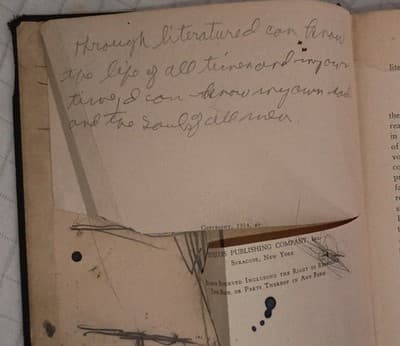 through literatured can know
the life of all times and my own
time, I can know my own soul
and the soul of all men.
COPYRIGHT, 1914, BY
PUBLISHING COMPANY, Inc.
SYRACUSE, NEW YORK
RESERVED INCLUDING THE RIGHT TO
THIS BOOK OR PARTS THEREOF IN ANY FORM
lite
the
rea
in
of
vo
co
p
fa
re
s